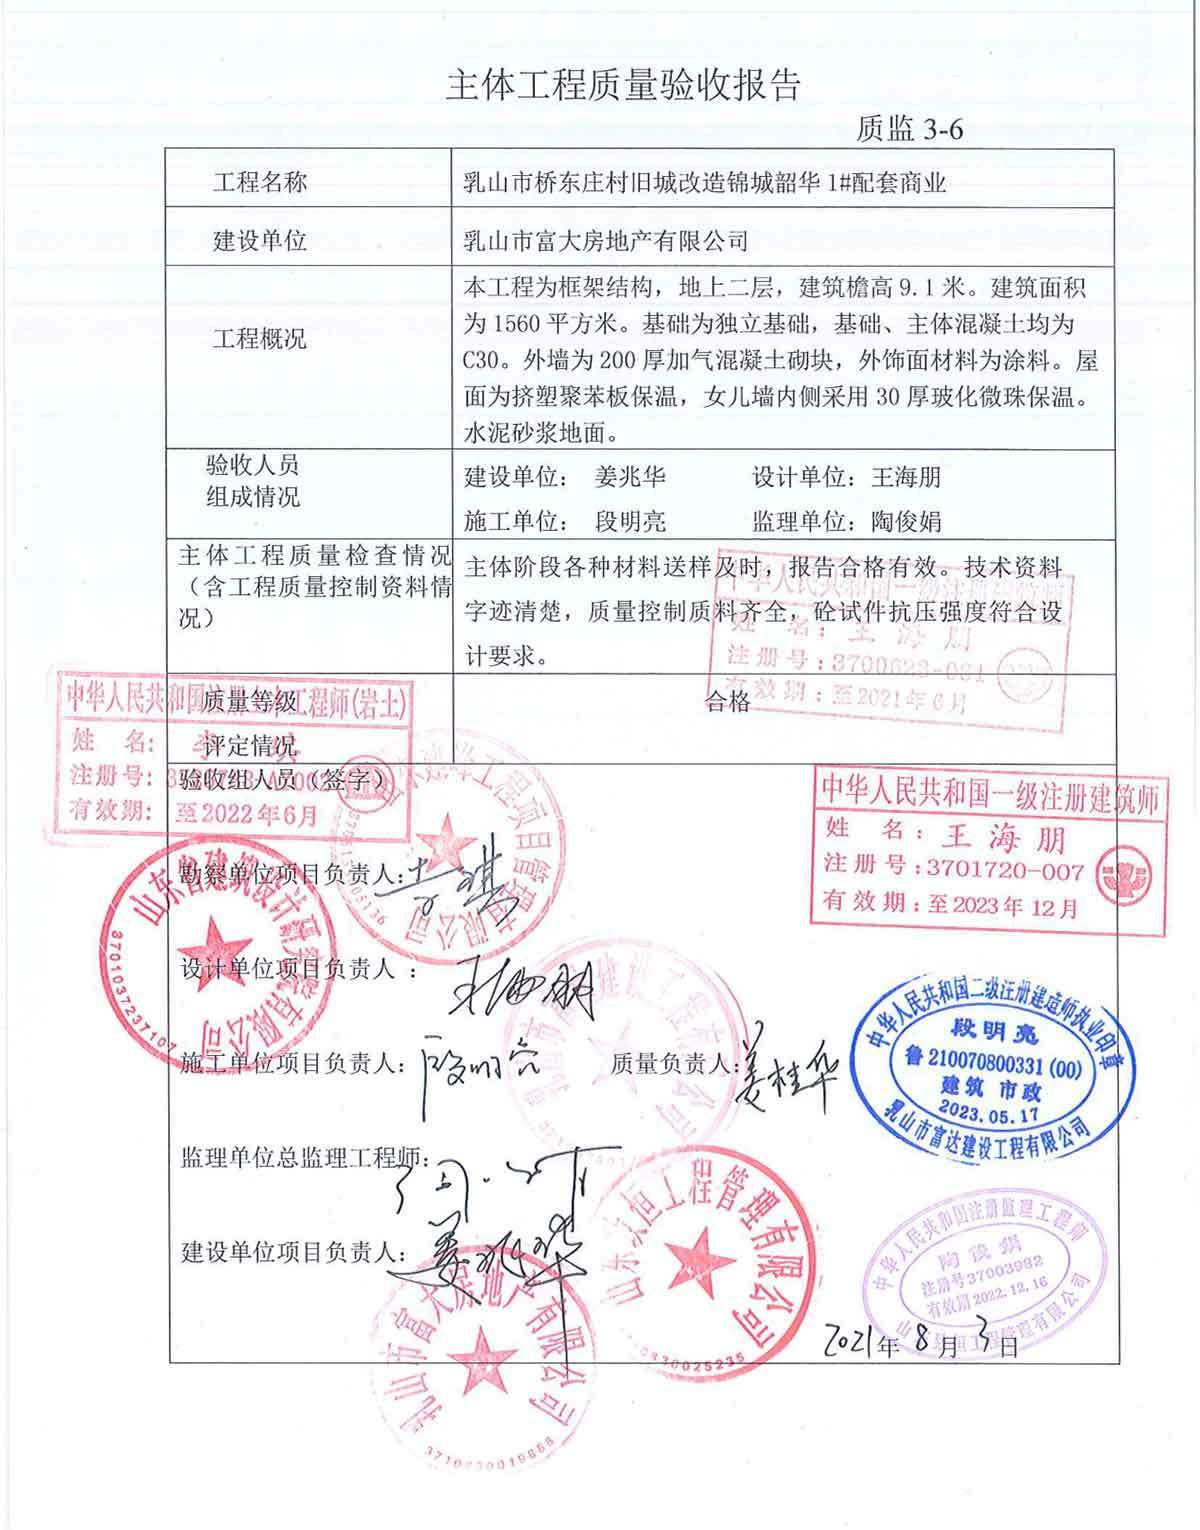 主体工程质量验收报告
质监 3-6
工程名称
乳山市桥东庄村旧城改造锦城韶华 1#配套商业
建设单位
乳山市富大房地产有限公司
工程概况
本工程为框架结构，地上二层，建筑檐高 9.1 米。建筑面积
为 1560 平方米。基础为独立基础，基础、主体混凝土均为
C30。外墙为 200 厚加气混凝土砌块，外饰面材料为涂料。屋
面为挤塑聚苯板保温，女儿墙内侧采用 30 厚玻化微珠保温。
水泥砂浆地面。
验收人员
组成情况
建设单位： 姜兆华 设计单位：王海朋
施工单位： 段明亮 监理单位：陶俊娟
主体工程质量检查情况
（含工程质量控制资料情
况）
主体阶段各种材料送样及时，报告合格有效。技术资料
字迹清楚，质量控制质料齐全，砼试件抗压强度符合设
计要求。
中华人民共和国一级注册建筑师
姓 名：王 海 朋
注册号：3700623-081
有效期：至2021年6月
质量等级
评定情况
合格
中华人民共和国注册土木工程师(岩土)
姓 名：李 琪
注册号：
有效期： 至2022年6月
验收组人员（签字）
中华人民共和国一级注册建筑师
姓 名：王 海 朋
注册号：3701720-007
有效期：至2023年12月
勘察单位项目负责人：李琪
工程项目管理有限公司
山东省建筑设计研究院有限公司
3701037237107
设计单位项目负责人 ：王海朋
施工单位项目负责人：段明亮 质量负责人：姜桂华
建设工程有限公司
中华人民共和国二级注册建造师执业印章
段明亮
鲁 210070800331 (00)
建筑 市政
2023.05.17
乳山市富达建设工程有限公司
监理单位总监理工程师：
建设单位项目负责人：姜兆华
山东京恒工程管理有限公司
中华人民共和国注册监理工程师
陶俊娟
注册号37003982
有效期2022.12.16
山东京恒工程管理有限公司
乳山市富大房地产有限公司
3710830019868
2021年 8 月 3 日